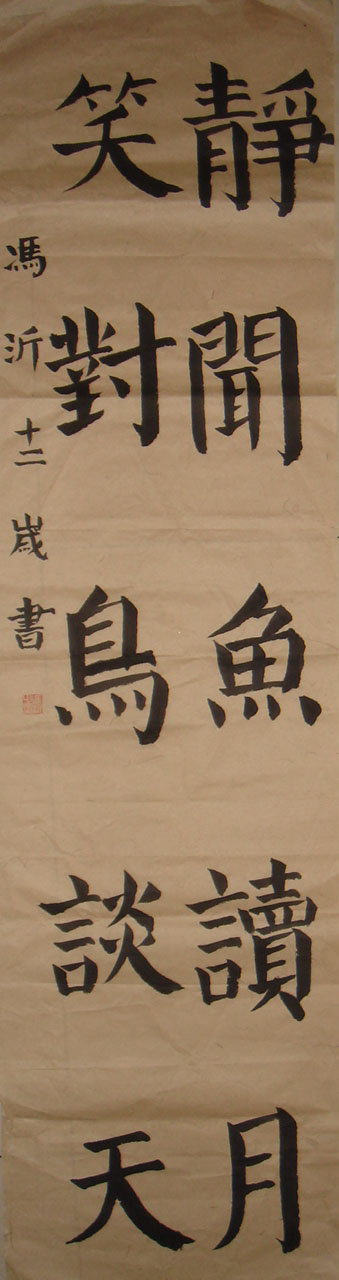 靜聞魚讀月
笑對鳥談天
馮沂十二歲書